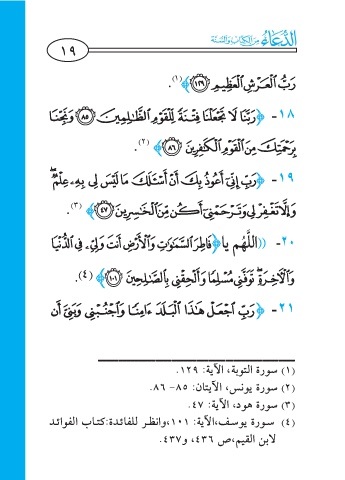 الدُّعَاءُ مِنَ الكِتَابِ وَالسُّنَّةِ
١٩
رَبُّ ٱلْعَرْشِ ٱلْعَظِيمِ ﴿١٢٩﴾﴾(١).
١٨- ﴿رَبَّنَا لَا تَجْعَلْنَا فِتْنَةً لِّلْقَوْمِ ٱلظَّٰلِمِينَ ﴿٨٥﴾ وَنَجِّنَا
بِرَحْمَتِكَ مِنَ ٱلْقَوْمِ ٱلْكَٰفِرِينَ ﴿٨٦﴾﴾(٢).
١٩- ﴿رَبِّ إِنِّىٓ أَعُوذُ بِكَ أَنْ أَسْـَٔلَكَ مَا لَيْسَ لِى بِهِۦ عِلْمٌۖ
وَإِلَّا تَغْفِرْ لِى وَتَرْحَمْنِىٓ أَكُن مِّنَ ٱلْخَٰسِرِينَ ﴿٤٧﴾﴾(٣).
٢٠- ((اللَّهُم يا﴿فَاطِرَ ٱلسَّمَٰوَٰتِ وَٱلْأَرْضِ أَنتَ وَلِىِّۦ فِى ٱلدُّنْيَا
وَٱلْأٓخِرَةِۖ تَوَفَّنِى مُسْلِمًا وَأَلْحِقْنِى بِٱلصَّٰلِحِينَ ﴿١٠١﴾﴾(٤).
٢١- ﴿رَبِّ ٱجْعَلْ هَٰذَا ٱلْبَلَدَ ءَامِنًا وَٱجْنُبْنِى وَبَنِىَّ أَن
(١) سورة التوبة، الآية: ١٢٩.
(٢) سورة يونس، الآيتان: ٨٥- ٨٦.
(٣) سورة هود، الآية: ٤٧.
(٤) سورة يوسف،الآية: ١٠١،وانظر للفائدة:كتاب الفوائد
لابن القيم،ص ٤٣٦، و٤٣٧.